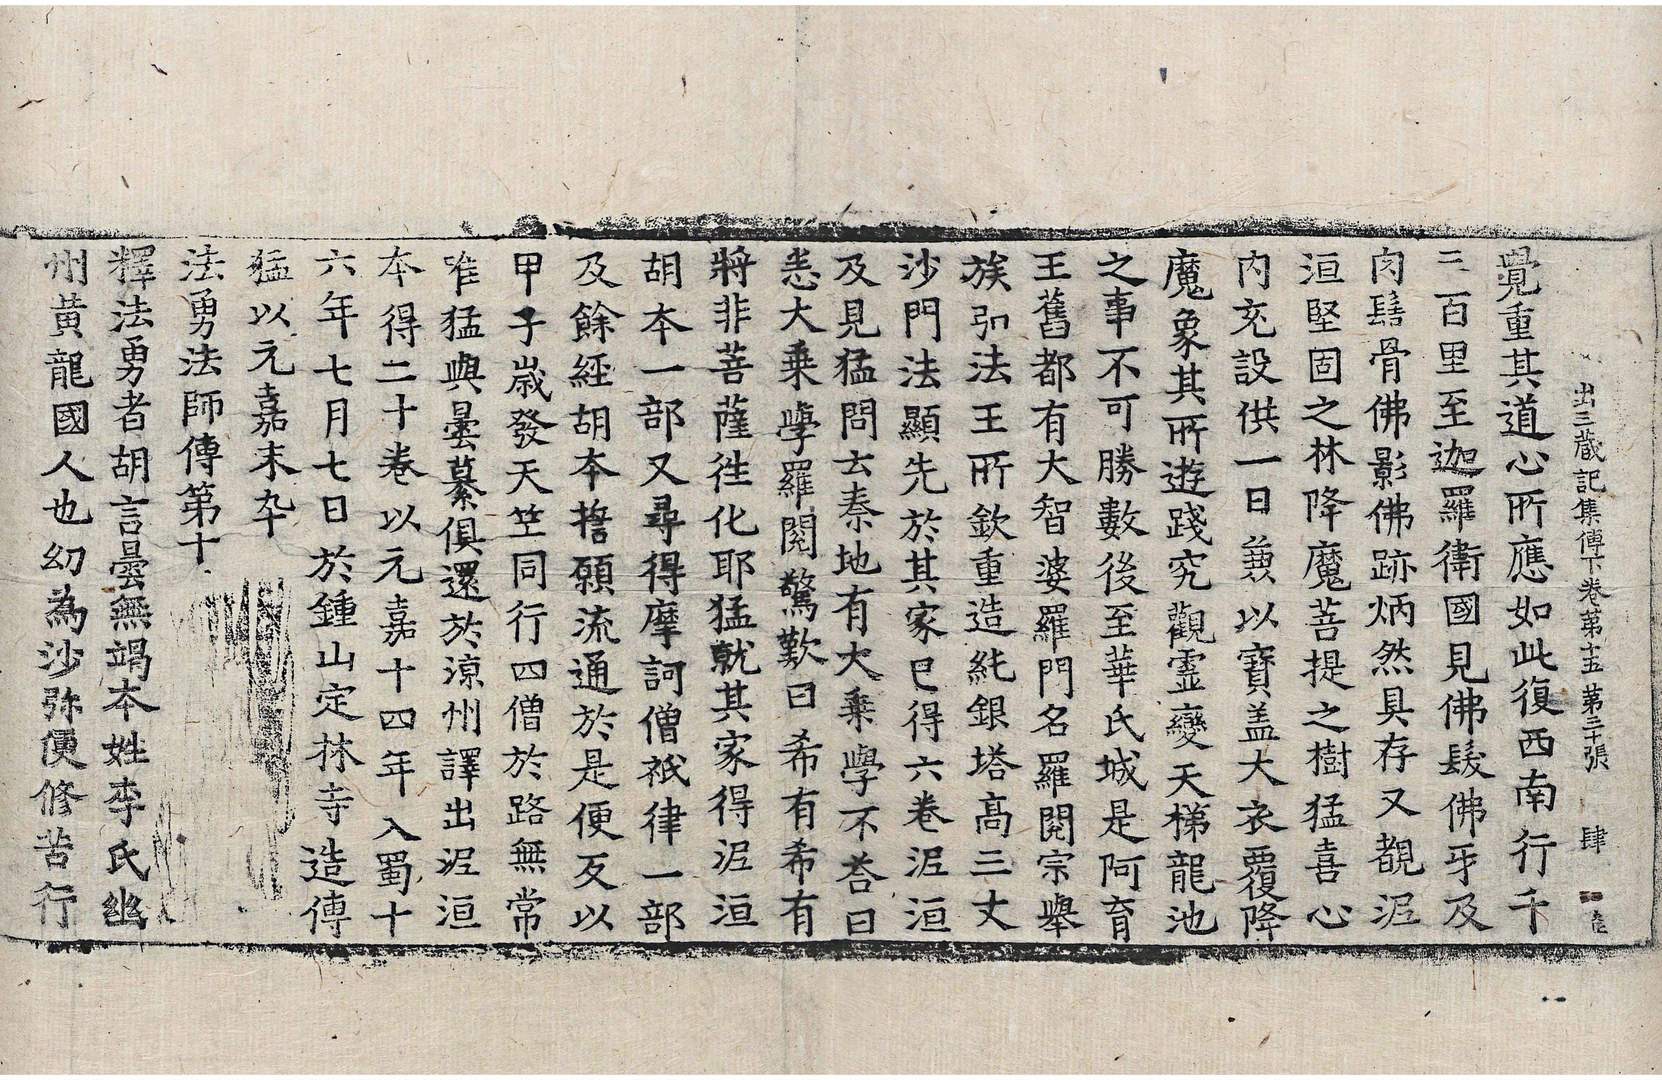 出三蔵記集傳下卷第十五 第二十張 肆
覺重其道心所應如此復西南行千
三百里至迦羅衛國見佛髮佛牙及
肉髻骨佛影佛跡炳然具存又覩泥
洹堅固之林降魔菩提之樹猛喜心
内充設供一日兼以寶盖大衣覆降
魔象其所遊踐究觀靈變天梯龍池
之事不可勝數後至華氏城是阿育
王舊都有大智婆羅門名羅閱宗舉
族弘法王所欽重造純銀塔髙三丈
沙門法顯先於其家已得六卷泥洹
及見猛問云秦地有大乗學不荅曰
悉大乗學羅閱驚歎曰希有希有
將非菩薩徃化耶猛就其家得泥洹
胡夲一部又尋得摩訶僧祇律一部
及餘經胡夲誓願流通於是便反以
甲子嵗發天竺同行四僧於路無常
唯猛與曇纂俱還於涼州譯出泥洹
夲得二十卷以元嘉十四年入蜀十
六年七月七日於鍾山定林寺造傳
猛以元嘉末卒
法勇法師傳第十
釋法勇者胡言曇無竭夲姓李氏幽
州黃龍國人也幼為沙弥便修苦行